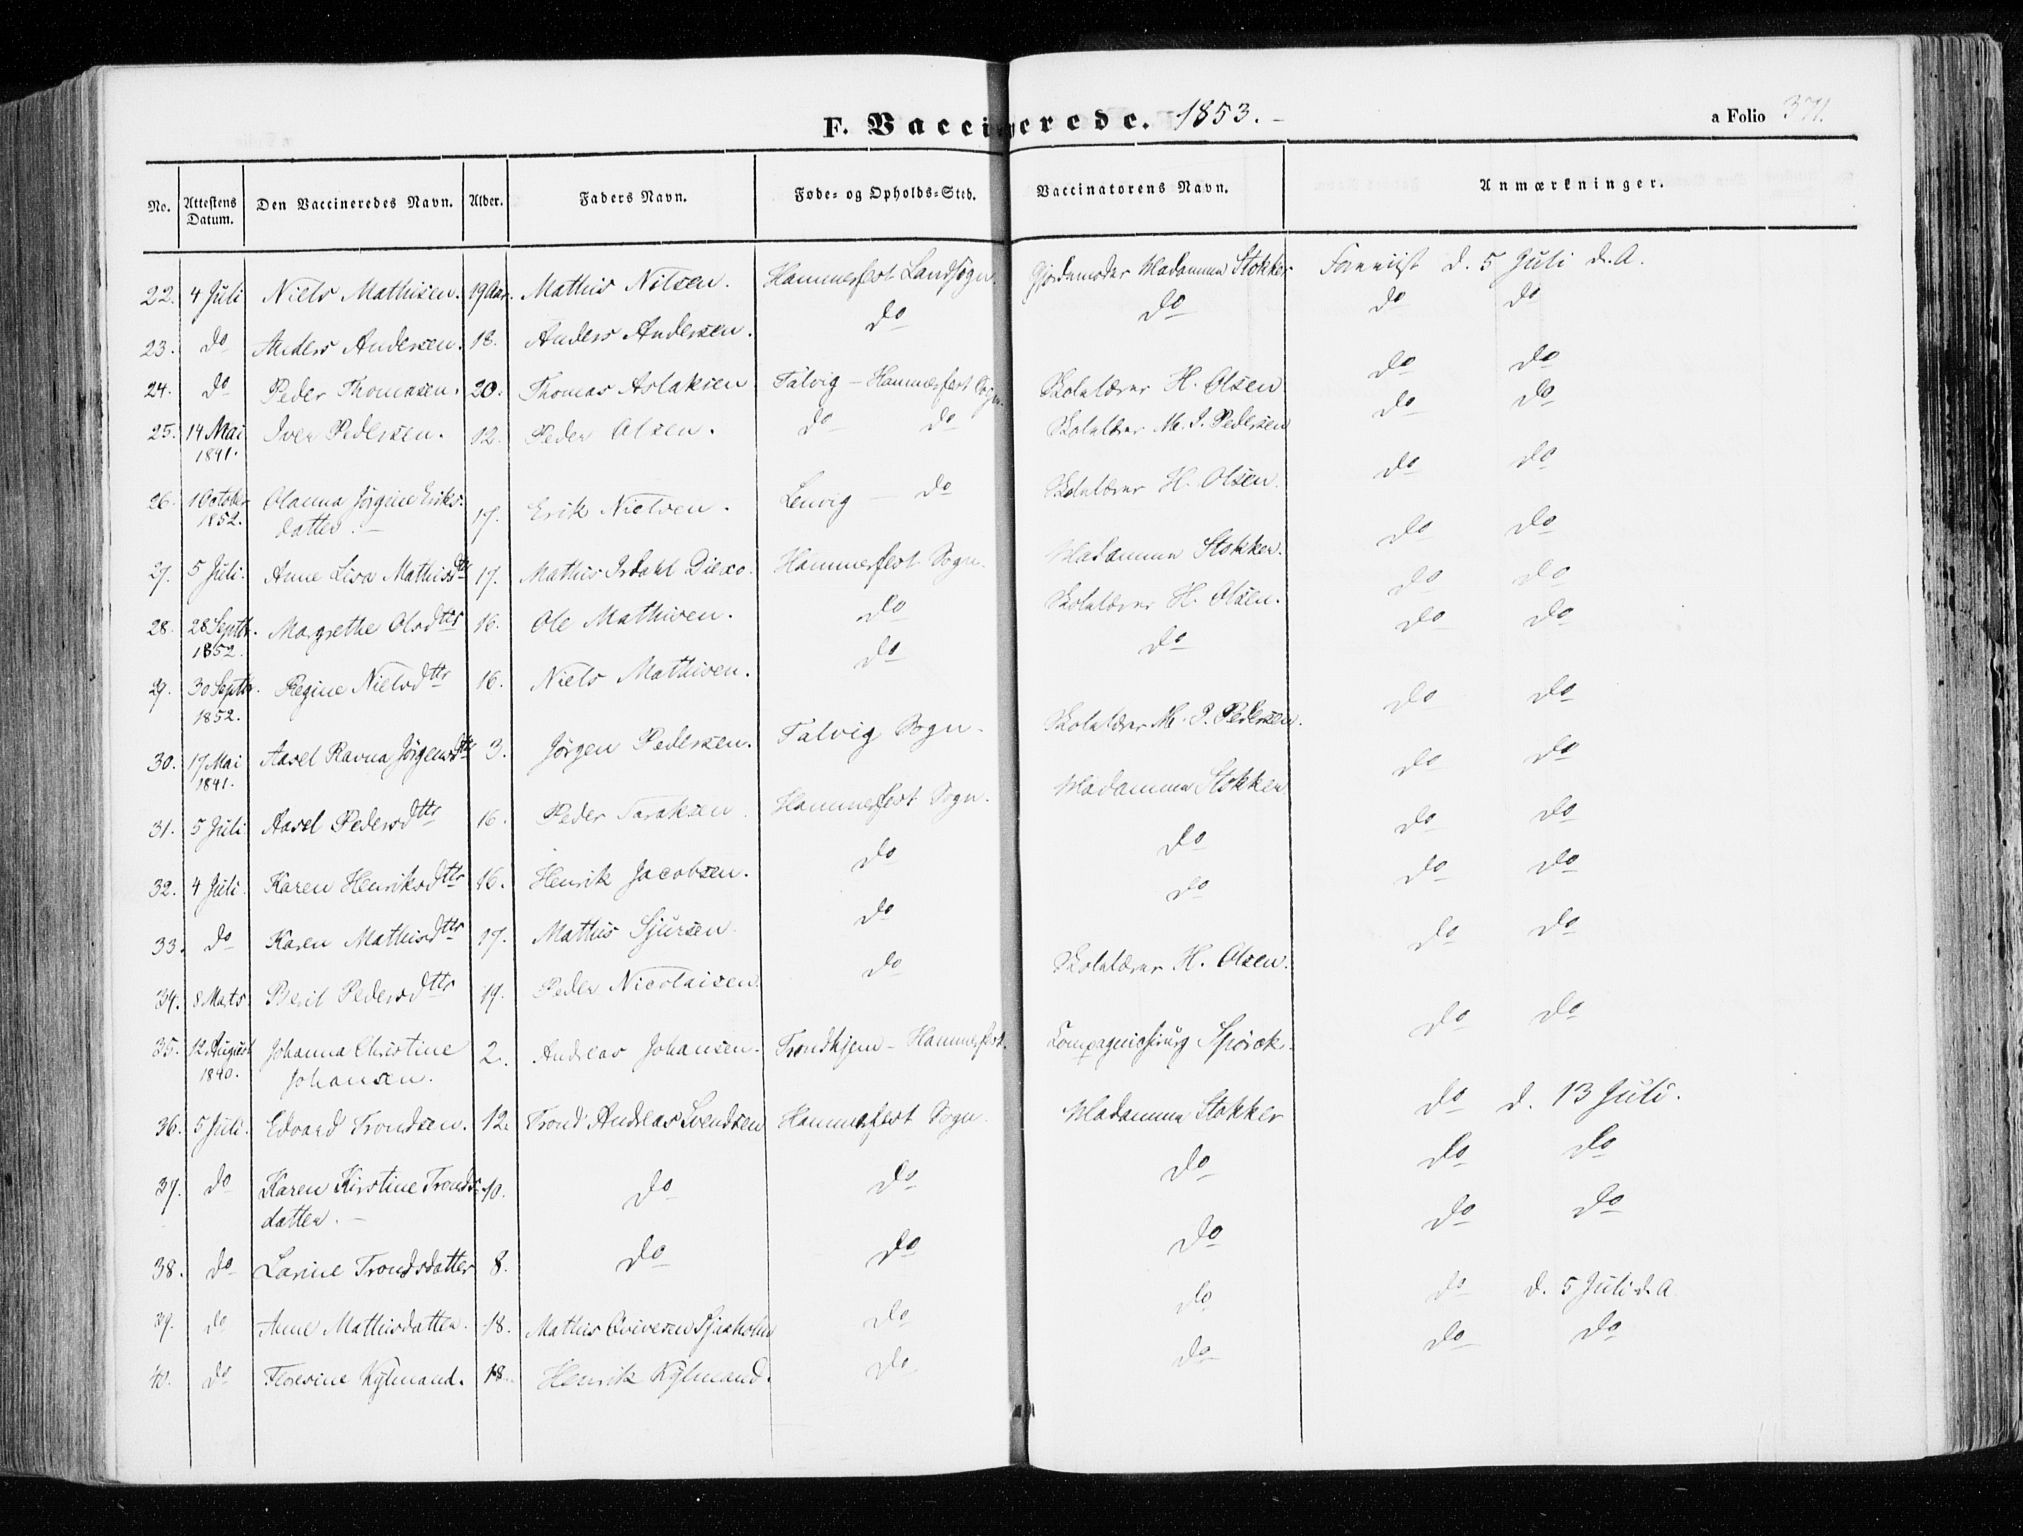 F. Vaccinerede. 1853.
a Folio 371.
No. Attestens Datum. Den Vaccineredes Navn. Alder. Faders Navn. Føde- og Opholds-Sted. Vaccinatorens Navn. Anmærkninger.
22. 4 Juli Niels Mathisen. 19 Aar. Mathis Nilsen. Hammerfest Landsogn. Gjordemoder Madamme Stokker Foreviist d. 5 Juli d. A.
23. do Anders Andersen. 18. Anders Andersen. do do do do
24. do Peder Thomasen. 20. Thomas Aslaksen Talvig - Hammerfest Sogn. Skolelærer H. Olsen do do
25. 14 Mai 1841. Iver Pedersen. 12. Peder Olsen. do do Skolelærer M. P. Pedersen do do
26. 1 October 1852. Olanna Jørgine Eriks-
datter. - 17. Erik Nielsen. Lenvig - do Skolelærer H. Olsen. do do
27. 5 Juli. Anne Lisa Mathisdtr 17. Mathis Isdahl Hammerfest Sogn. Madamme Stokker. do do
28. 28 Septbr. 1852. Margrethe Olsdttr 16. Ole Mathisen. do Skolelærer H. Olsen. do do
29. 30 Septbr. 1852. Regine Nielsdttr 16. Niels Mathisen. do do do do
30. 17 Mai 1841. Aasel Ravna Jørgensdtr 3. Jørgen Pedersen. Talvig Sogn. Skolelærer M. P. Pedersen. do do
31. 5 Juli Aasel Pedersdttr 16. Peder Hammerfest Sogn. Madamme Stokker do do
32. 4 Juli. Karen Henriksdttr 16. Henrik Jacobsen. do do do do
33. do Karen Mathisdttr 17. Mathis Sjursen. do do do do
34. 8 Marts Berit Pedersdttr 19. Peder Nicolaisen. do Skolelærer H. Olsen. do do
35. 12 August 1840. Johanna Christine
Johansen. 2. Andreas Johansen. Trondhjem - Hammerfest. Compagniechirurg do do
36. 5 Juli. Edvard Trondsen. 12. Trond Andreas Svendsen Hammerfest Sogn. Madamme Stokker do d. 13 Juli.
37. do Karen Kirstine Tronds-
datter. - 10. do do do do do
38. do Larine Trondsdatter 8. do do do do do
39. do Anne Mathisdatter. 18. Mathis do do do d. 5 Juli d. A
40. do Floresine Kylmand. 18. Henrik Kylmand. do do do do